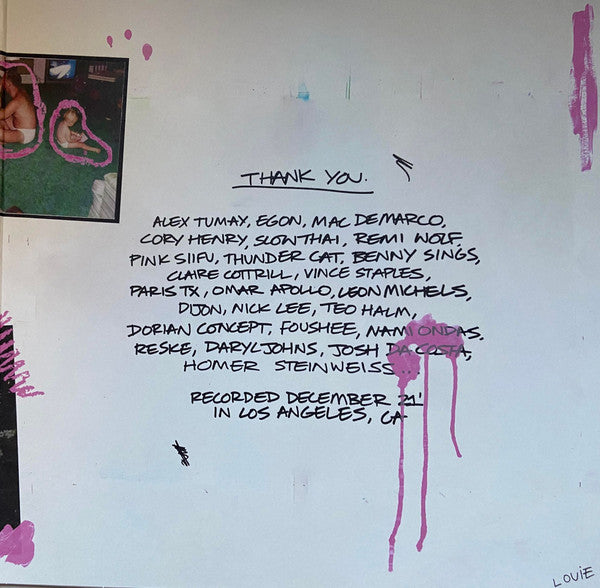 THANK YOU.
ALEX TUMAY, EGON, MAC DEMARCO,
CORY HENRY, SLOWTHAI, REMI WOLF,
PINK SIIFU, THUNDER CAT, BENNY SINGS,
CLAIRE COTTRILL, VINCE STAPLES,
PARIS TX, OMAR APOLLO, LEON MICHELS,
DIJON, NICK LEE, TEO HALM,
DORIAN CONCEPT, FOUSHEE, NAMI ONDAS,
RESKE, DARYL JOHNS, JOSH DA COSTA,
HOMER STEINWEISS...
RECORDED DECEMBER 21'
IN LOS ANGELES, CA
LOUIE